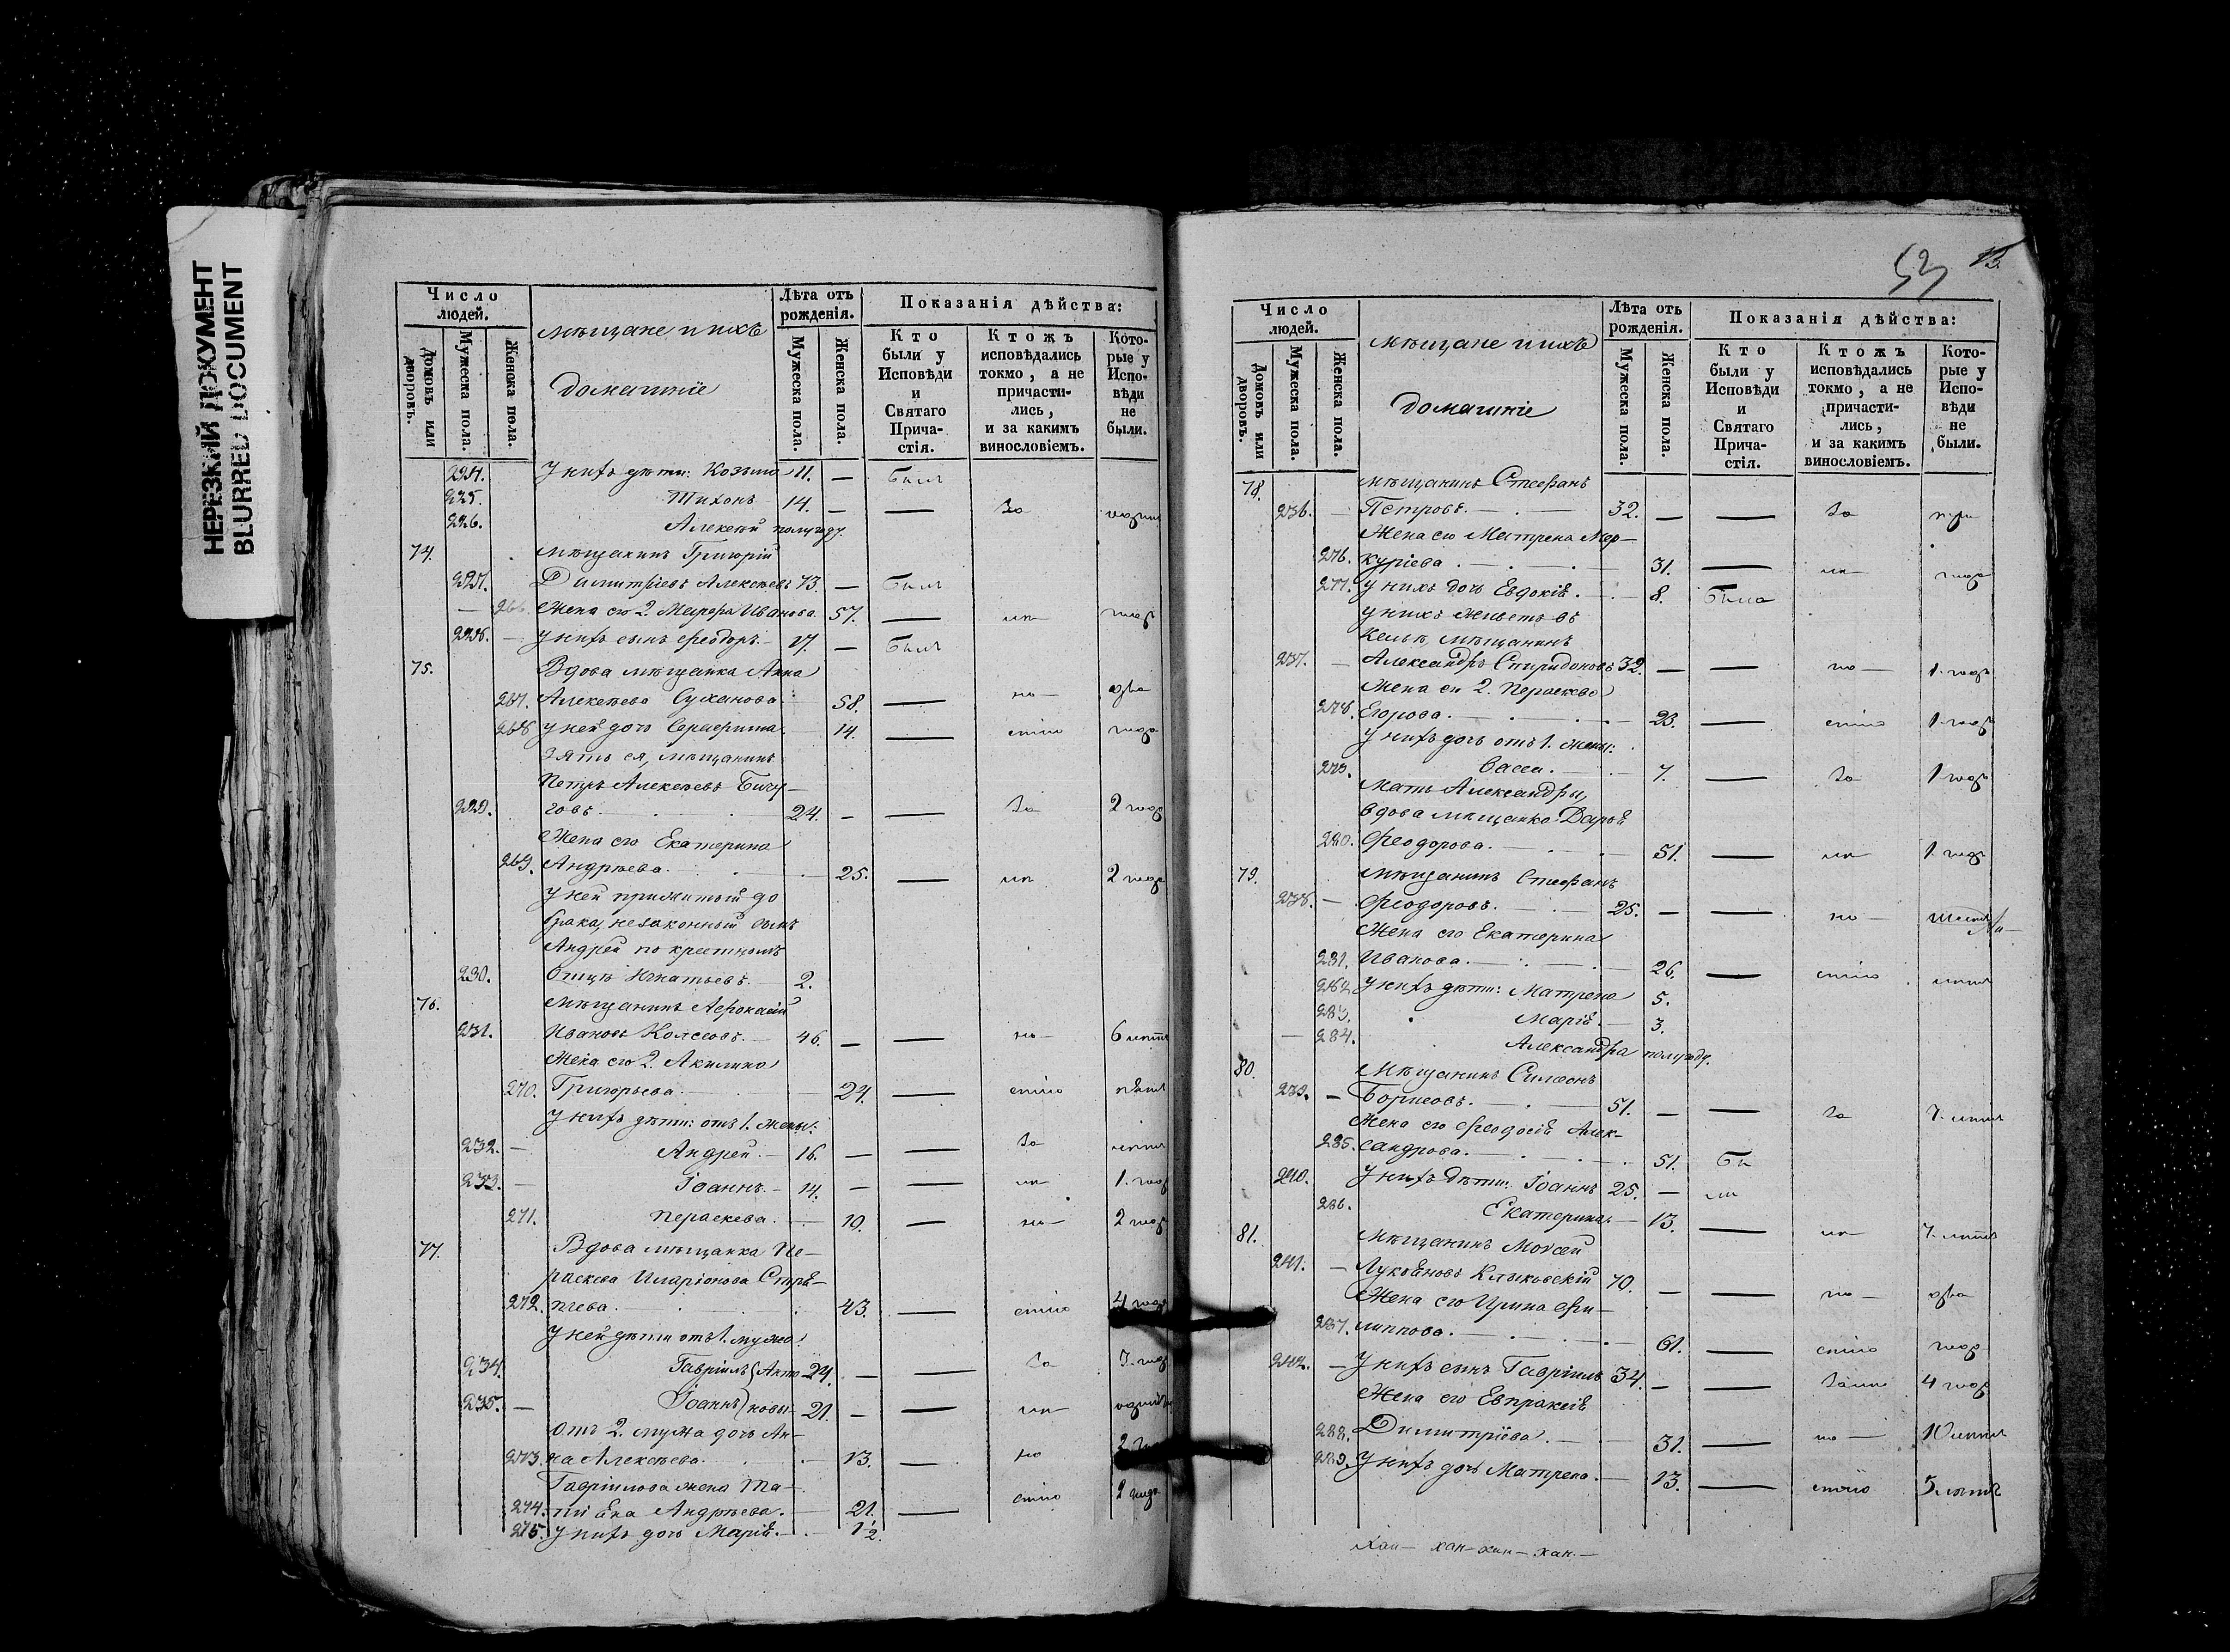 НЕРЕЗКИЙ ДОКУМЕНТ
BLURRED DOCUMENT
Число людей.
Домовъ или дворовъ.
Мужеска пола.
Женска пола.
мѣщане и ихъ
домашніе
Лѣта отъ рожденія.
Мужеска пола.
Женска пола.
Показанія дѣйства:
Кто были у Исповѣди и Святаго Прича-стія.
Ктожъ исповѣдались токмо, а не причасти-лись, и за какимъ винословіемъ.
Кото-рые у Испо-вѣди не были.
224. У нихъ дѣти: Козьма 11. — Былъ
225. Тихонъ 14. — — за
226. Алексѣй полугоду.
74. мѣщанинъ Григорій
227. Димитріевъ Алексѣевъ 73. — Былъ
— 266. Жена его 2. Марфа Иванова 57. —
228. — У нихъ сынъ Феодоръ. — 17. — Былъ
75. Вдова мѣщанка Анна
267. Алексѣева Суханова 58. — но— два
268 у ней дочь Серафима. 14. — стію года
Зять ея, мѣщанинъ
Петръ Алексѣевъ Бичу—
229. говъ. 24. — — За 2 год
Жена его Екатерина
269. Андрѣева. — 25. — 2 год
У ней прижитый до
брака, незаконный сынъ
Андрей по крестномъ
230. Отцѣ Игнатьевъ. — 2.
76. Мѣщанинъ Афонасій
231. Ивановъ Колсовъ. — 46. — — но— 6 лѣтъ
Жена его 2. Акилина
270. Григорьева. — 24. — стію пять
У нихъ дѣти: отъ 1. жены:
232. — Андрей. — 16. — — За лѣтъ
233. — Іоаннъ. — 14. — — 1. год
271. Пераскева. — 10. — но— 2 год
77. Вдова мѣщанка Пе—
раскева Иларіонова Стрѣ—
272. пчева. 43. — стію 4 год
У ней дѣти отъ 1. мужа:
234. Гавріилъ (Анто— 24. — — За
235. — Іоаннъ) новы— 21. — —
Отъ 2. мужа дочь Ан—
273. на Алексѣева. 13. — но
Гавріилова жена Та—
274. тіана Андрѣева. — 21. — стію 2 года
275. У нихъ дочь Марія. — 1½.
53
Число людей.
Домовъ или дворовъ.
Мужеска пола.
Женска пола.
мѣщане и ихъ
домашніе
Лѣта отъ рожденія.
Мужеска пола.
Женска пола.
Показанія дѣйства:
Кто были у Исповѣди и Святаго Прича-стія.
Ктожъ исповѣдались токмо, а не причасти-лись, и за какимъ винословіемъ.
Кото-рые у Испо-вѣди не были.
78. мѣщанинъ Стефанъ
236. — Петровъ. — 32. — — За три
Жена его Матрена Мер—
276. куріева. — 31. — года
277. У нихъ дочь Евдокія. — 8. Была
у нихъ живетъ въ
кельѣ, мѣщанинъ
237. — Александръ Спиридоновъ 32. — — но— 1. годъ
Жена его 2. Пераскева
278. Егорова. — 23. — стію 1. год
У нихъ дочь отъ 1. жены:
279. Васса. — 7. — За 1 годъ
Мать Александры,
вдова мѣщанка Дарья
280. Феодорова. — 51. — 1. годъ
79. Мѣщанинъ Стефанъ
238. — Феодоровъ. — 25. — — но—
Жена его Екатерина
281. Иванова. — 26. — стію лѣтъ
282. У нихъ дѣти: Матрена 5.
283. Марія. — 3.
— 284. Александра полугоду.
80. Мѣщанинъ Симеонъ
239. — Борисовъ. — 51. — — За 7. лѣтъ
Жена его Феодосія Алек—
285. сандрова. — 51. Бы
240. У нихъ дѣти: Іоаннъ 25. — ли
286. Екатерина. — 13. — 7. лѣтъ
81. Мѣщанинъ Моисей
241. — Лукьяновъ Клыковскій 70. — — но— два
Жена его Ирина Фи—
287. липпова. — 61. — стію года
242. — У нихъ сынъ Гавріилъ 34. — — 4 год
Жена его Евпраксія
288. Димитріева. — 31. — но— 10 лѣтъ
289. У нихъ дочь Матрена. — 13. — стію 5 лѣтъ